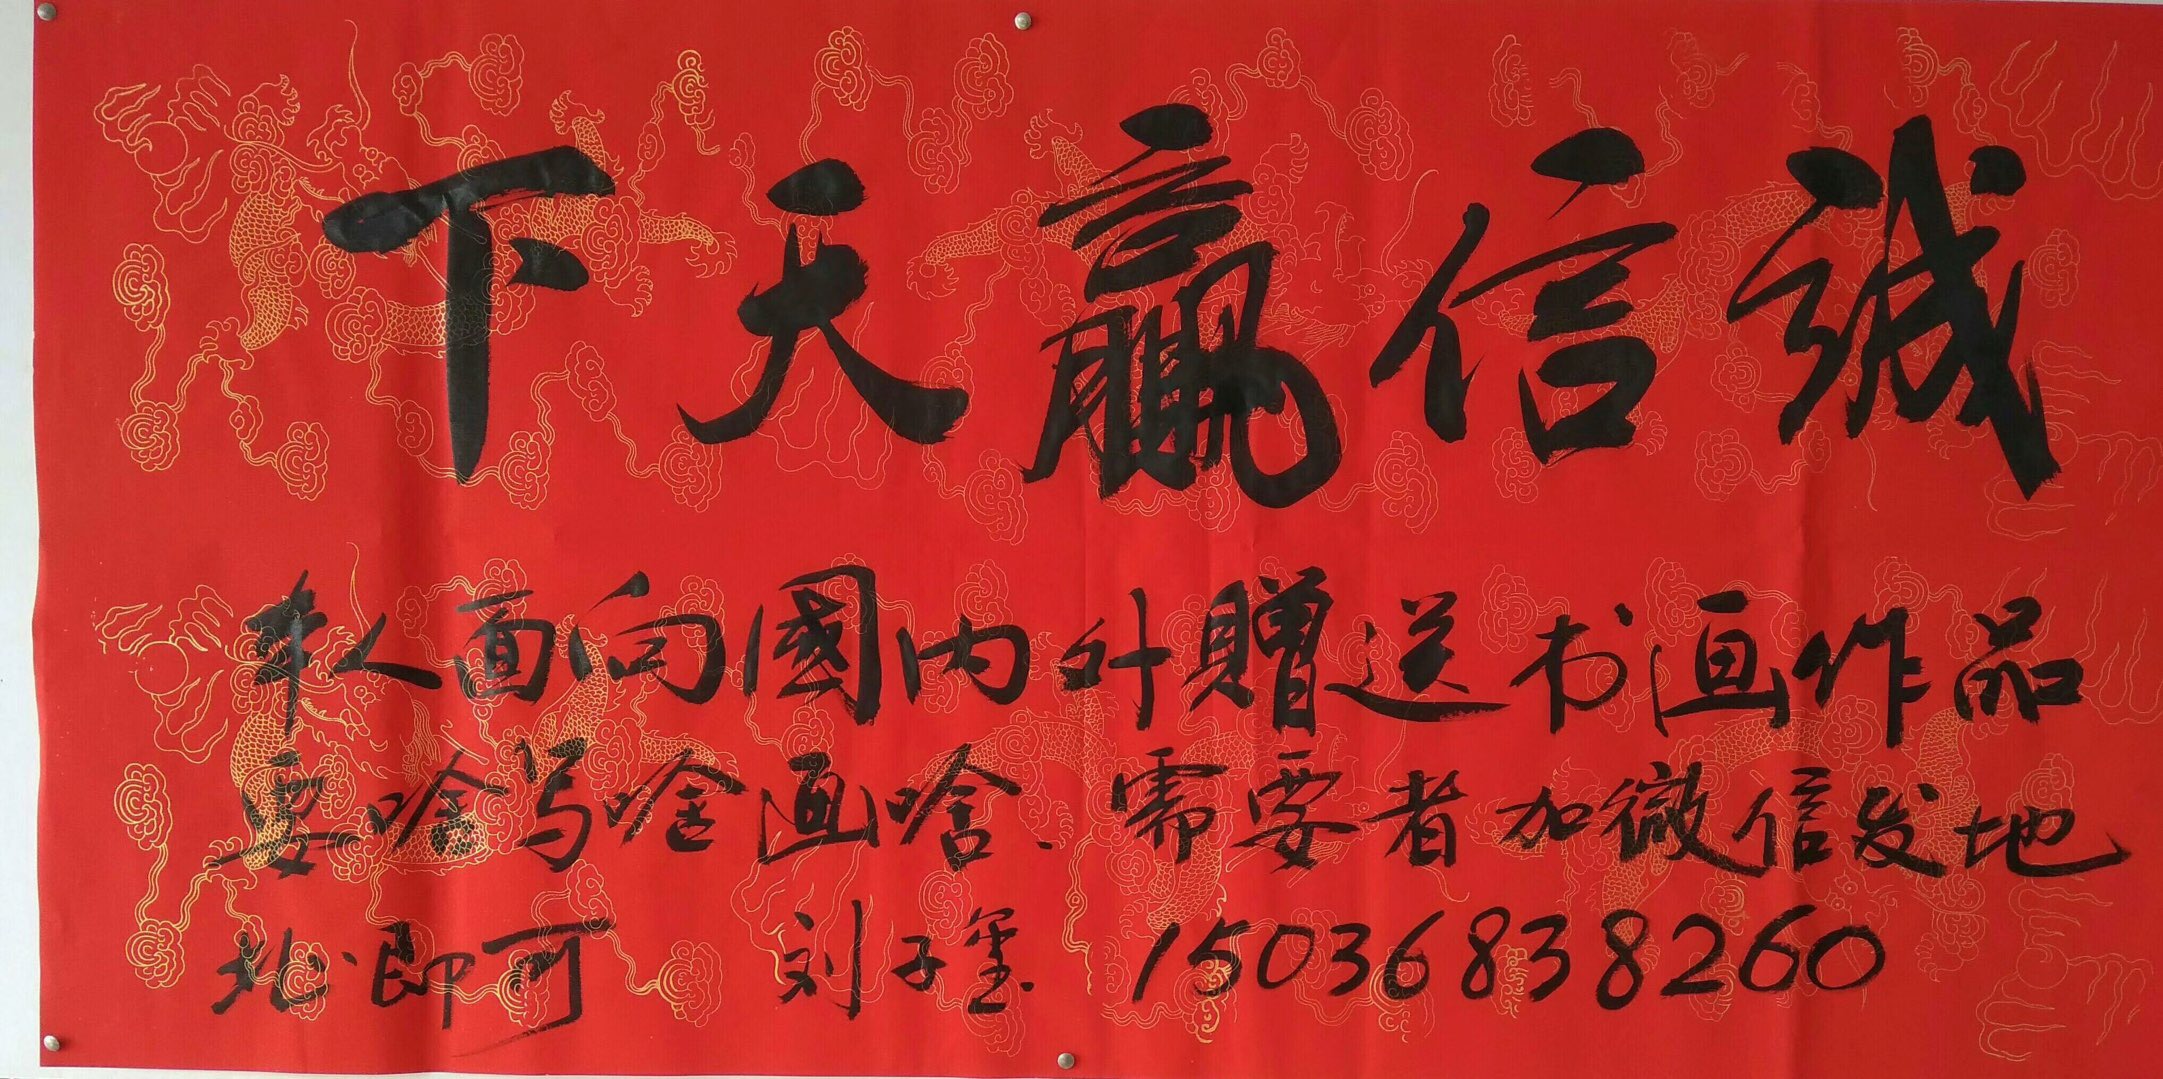 诚信赢天下
本人面向國内外赠送书画作品
要啥写啥画啥.需要者加微信发地
址.即可 刘子玺 15036838260